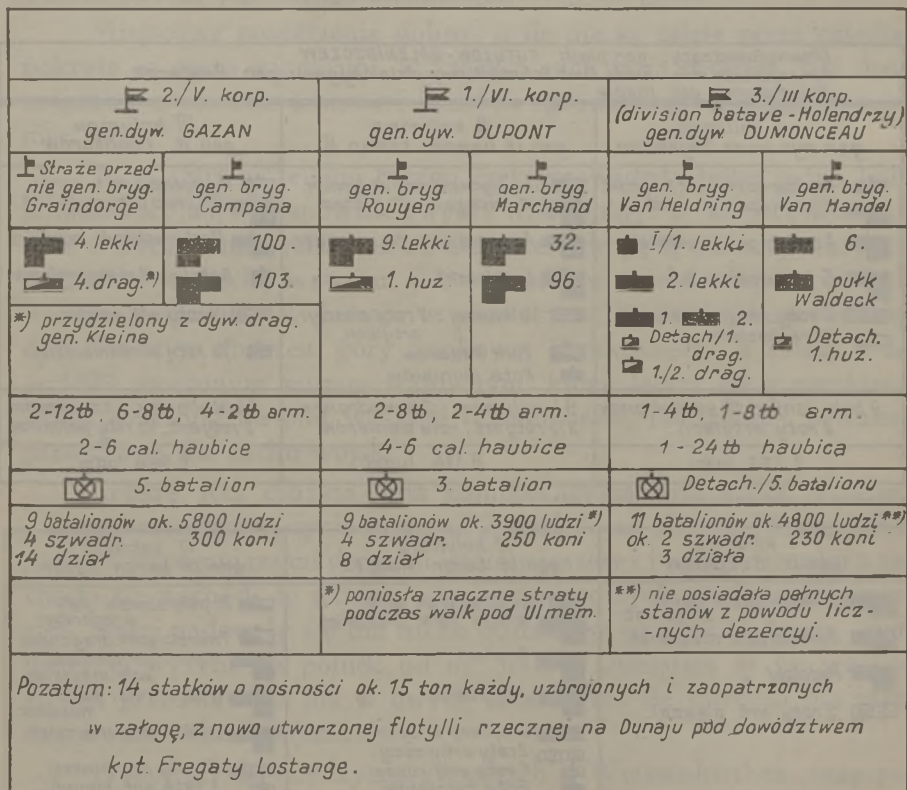 2./V. korp.
gen.dyw. GAZAN
1./VI. korp.
gen.dyw. DUPONT
3./III korp.
(division batave - Holendrzy)
gen.dyw. DUMONCEAU
Straże przed-
nie gen. bryg.
Graindorge
gen. bryg.
Campana
gen. bryg.
Rouyer
gen. bryg.
Marchand
gen. bryg.
Van Heldring
gen. bryg.
Van Handel
4. lekki
4. drag.*)
100.
103.
9. lekki
1. huz.
32.
96.
I/1. lekki
2. lekki
1. 2.
Detach/1.
drag.
1./2. drag.
6.
pułk
Waldeck
Detach.
1. huz.
*) przydzielony z dyw. drag.
gen. Kleina
2-12 ℔, 6-8 ℔, 4-2 ℔ arm.
2-6 cal. haubice
2-8 ℔, 2-4 ℔ arm.
4-6 cal. haubice
1-4 ℔, 1-8 ℔ arm.
1 - 24 ℔ haubica
5. batalion
3. batalion
Detach./5. batalionu
9 batalionów ok. 5800 ludzi
4 szwadr. 300 koni
14 dział
9 batalionów ok. 3900 ludzi*)
4 szwadr. 250 koni
8 dział
11 batalionów ok. 4800 ludzi**)
ok. 2 szwadr. 230 koni
3 działa
*) poniosła znaczne straty
podczas walk pod Ulmem.
**) nie posiadała pełnych
stanów z powodu licz-
-nych dezercyj.
Pozatym: 14 statków o nośności ok. 15 ton każdy, uzbrojonych i zaopatrzonych
w załogę, z nowo utworzonej flotylli rzecznej na Dunaju pod dowództwem
kpt. Fregaty Lostange.